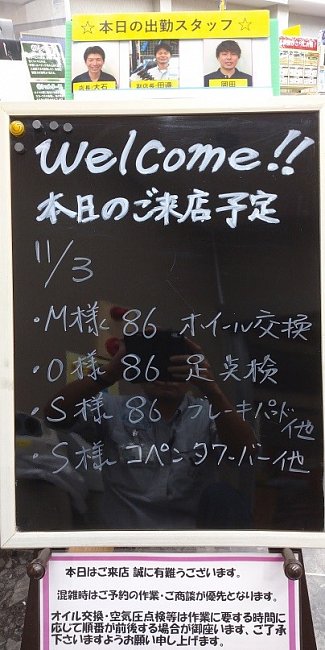 ☆本日の出勤スタッフ☆
店長:大石 副店長:田邊 岡田
Welcome!!
本日のご来店予定
11/3
・M様 86 オイル交換
・O様 86 足点検
・S様 86 ブレーキパッド他
・S様 コペン タワーバー他
本日はご来店 誠に有難うございます。
混雑時はご予約の作業・ご商談が優先となります。
オイル交換・空気圧点検等は作業に要する時間に
応じて順番が前後する場合が御座います、ご了承
下さいますようお願い申し上げます。